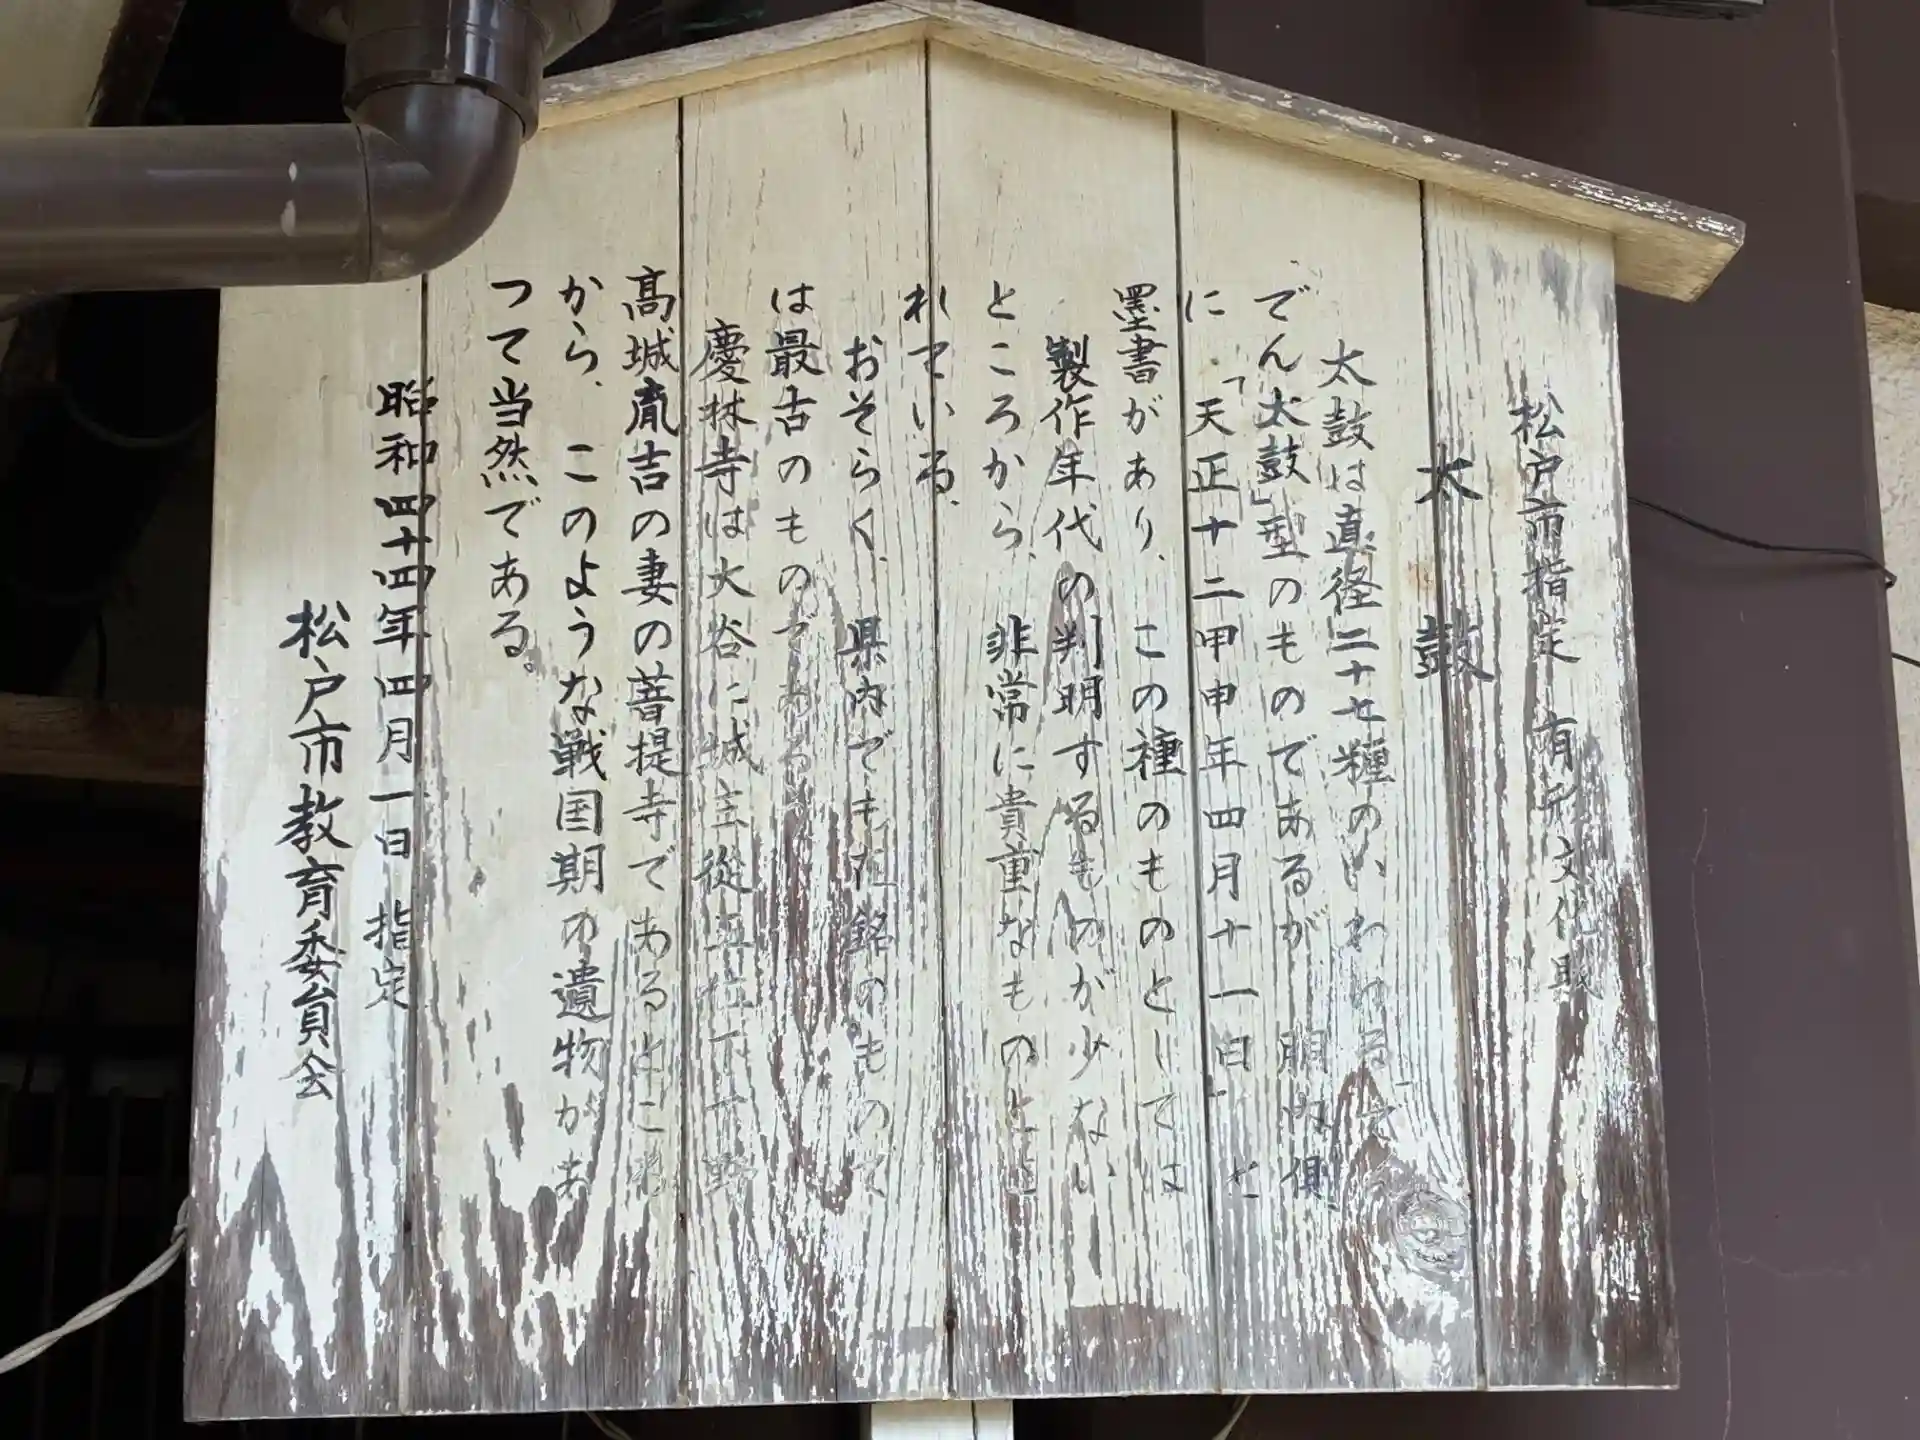 松戸市指定 有形文化財
太鼓
太鼓は直径二十七糎のいわゆる「で
でん太鼓」型のものであるが、胴内側
に「天正十二甲申年四月十一日」と
墨書があり、この種のものとしては
製作年代の判明するものが少ない
ところから、非常に貴重なものとさ
れている。
おそらく、県内でも在銘のもので
は最古のものである。
慶林寺は大谷口城主従五位下下野
高城胤吉の妻の菩提寺であるところ
から、このような戦国期の遺物があ
つて当然である。
昭和四十四年四月一日 指定
松戸市教育委員会